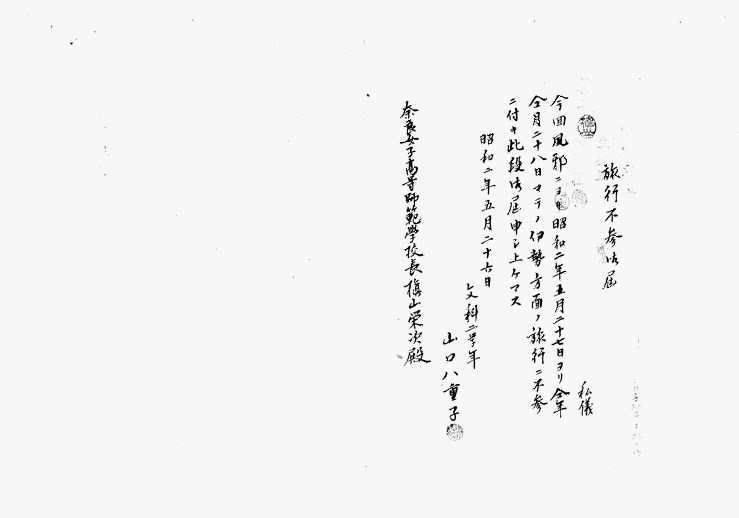 旅行不参御届
私儀
今回風邪ニヨリ昭和二年五月二十七日ヨリ仝年
仝月二十八日マデノ伊勢方面ノ旅行ニ不参
ニ付キ此段御届申シ上ケマス
昭和二年五月二十六日
文科二学年
山口八重子
奈良女子高等師範學校長槇山栄次殿